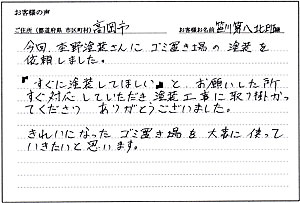 お客様の声
ご住所(都道府県 市区町村) 高岡市 お客様お名前 笹川第八北部
今回、荃野塗装さんに ゴミ置き場の 塗装を
依頼しました。
『すぐに塗装してほしい』と お願いした所
すぐ対応していただき 塗装工事に取り掛かっ
てくださり ありがとうございました。
きれいになった ゴミ置き場を 大事に使って
いきたいと思います。